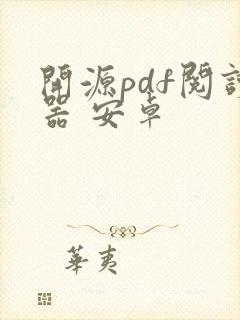 開源pdf閱讀
器 安卓
華夷